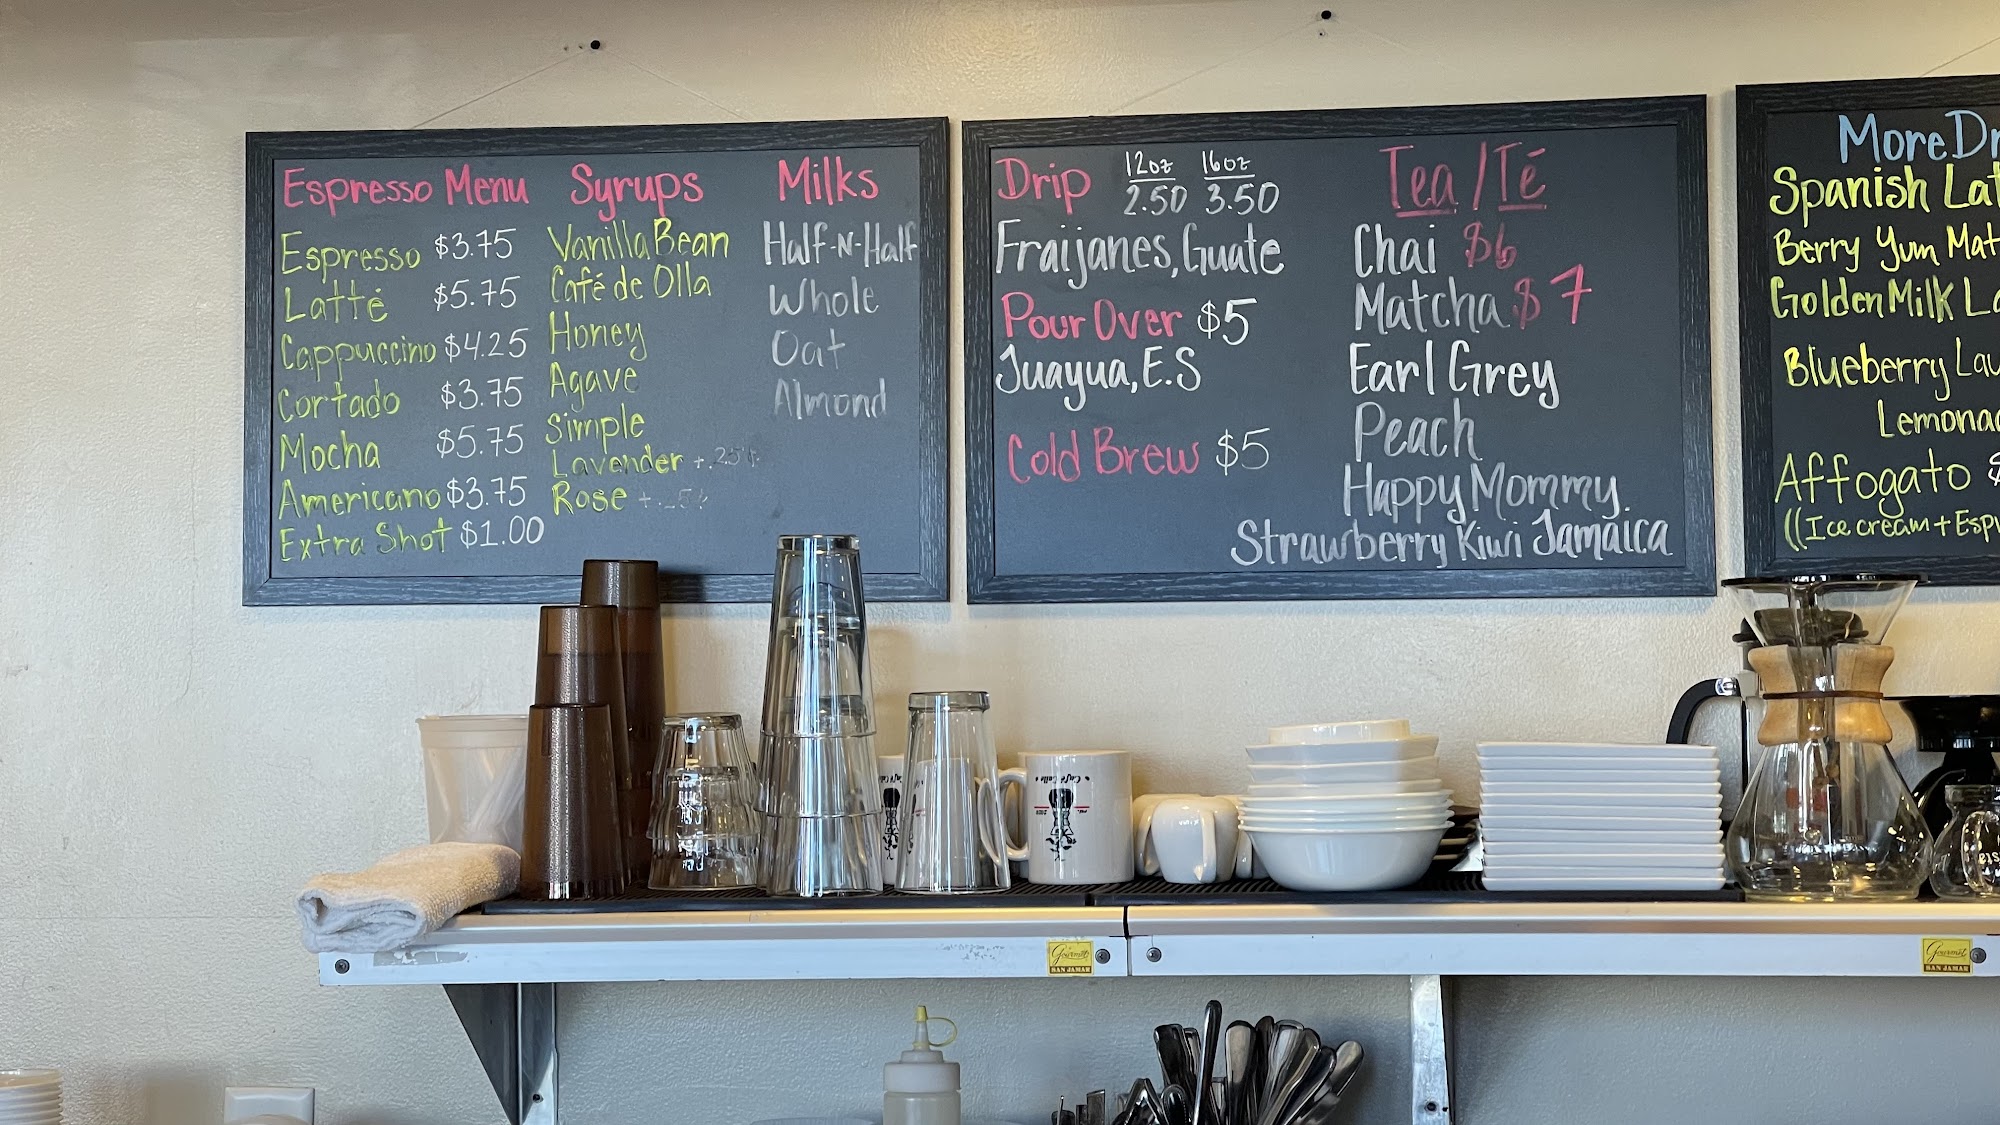 Espresso Menu
Espresso $3.75
Latté $5.75
Cappuccino $4.25
Cortado $3.75
Mocha $5.75
Americano $3.75
Extra Shot $1.00
Syrups
Vanilla Bean
Café de Olla
Honey
Agave
Simple
Lavender +.25¢
Rose
Milks
Half-N-Half
Whole
Oat
Almond
Drip 12oz 16oz
2.50 3.50
Fraijanes, Guate
Pour Over $5
Juayua, E.S
Cold Brew $5
Tea/Té
Chai $6
Matcha $7
Earl Grey
Peach
Happy Mommy.
Strawberry Kiwi Jamaica
More Dr
Spanish Lat
Berry Yum Mat
Golden Milk La
Blueberry Lav
Lemonad
Affogato $
((Ice cream + Espr
Gourmet
SAN JAMAR
Gourmet
SAN JAMAR